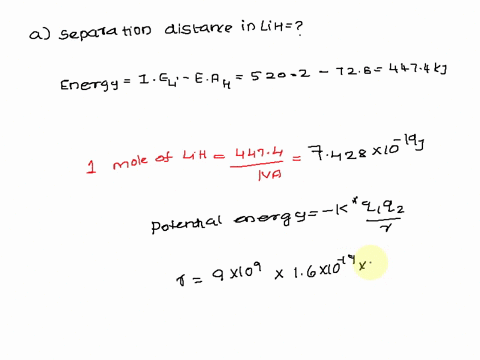 a) Separation distance in LiH=?
Energy = I.E Li - E.A H = 520.2 - 72.8 = 447.4 kJ
1 mole of LiH = 447.4 / NA = 7.428 × 10^-19 J
Potential energy = -K * q1 q2 / r
r = 9 × 10^9 × 1.6 × 10^-19 ×